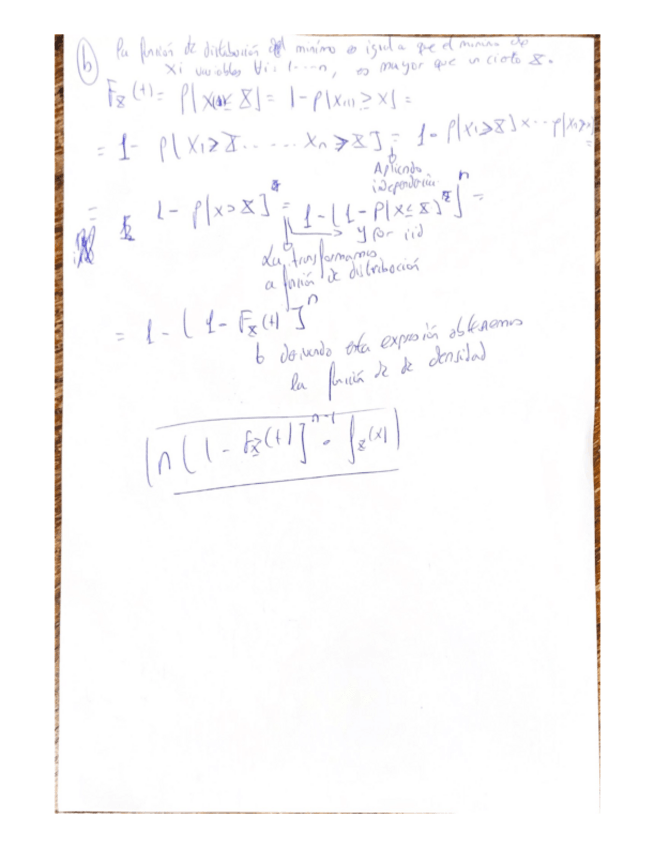 (b) la función de distribución del mínimo es igual a que el mínimo de
Xi variables ∀i = 1 ---- n, es mayor que un cierto X.
F_X(t) = P[X(1) ≤ X] = 1 - P[X(1) ≥ X] =
= 1 - P[X1 ≥ X ...... Xn ≥ X] = 1 - P[X1 ≥ X] × ... P[Xn ≥
Aplicando
independencia
= 1 - P[X > X]^n = 1 - [1 - P[X ≤ X]]^n =
y por iid
Lo transformamos
a función de distribución
= 1 - [1 - F_X(t)]^n
derivando esta expresión obtenemos
la función de de densidad
n[1 - F_X(t)]^{n-1} · f_X(x)